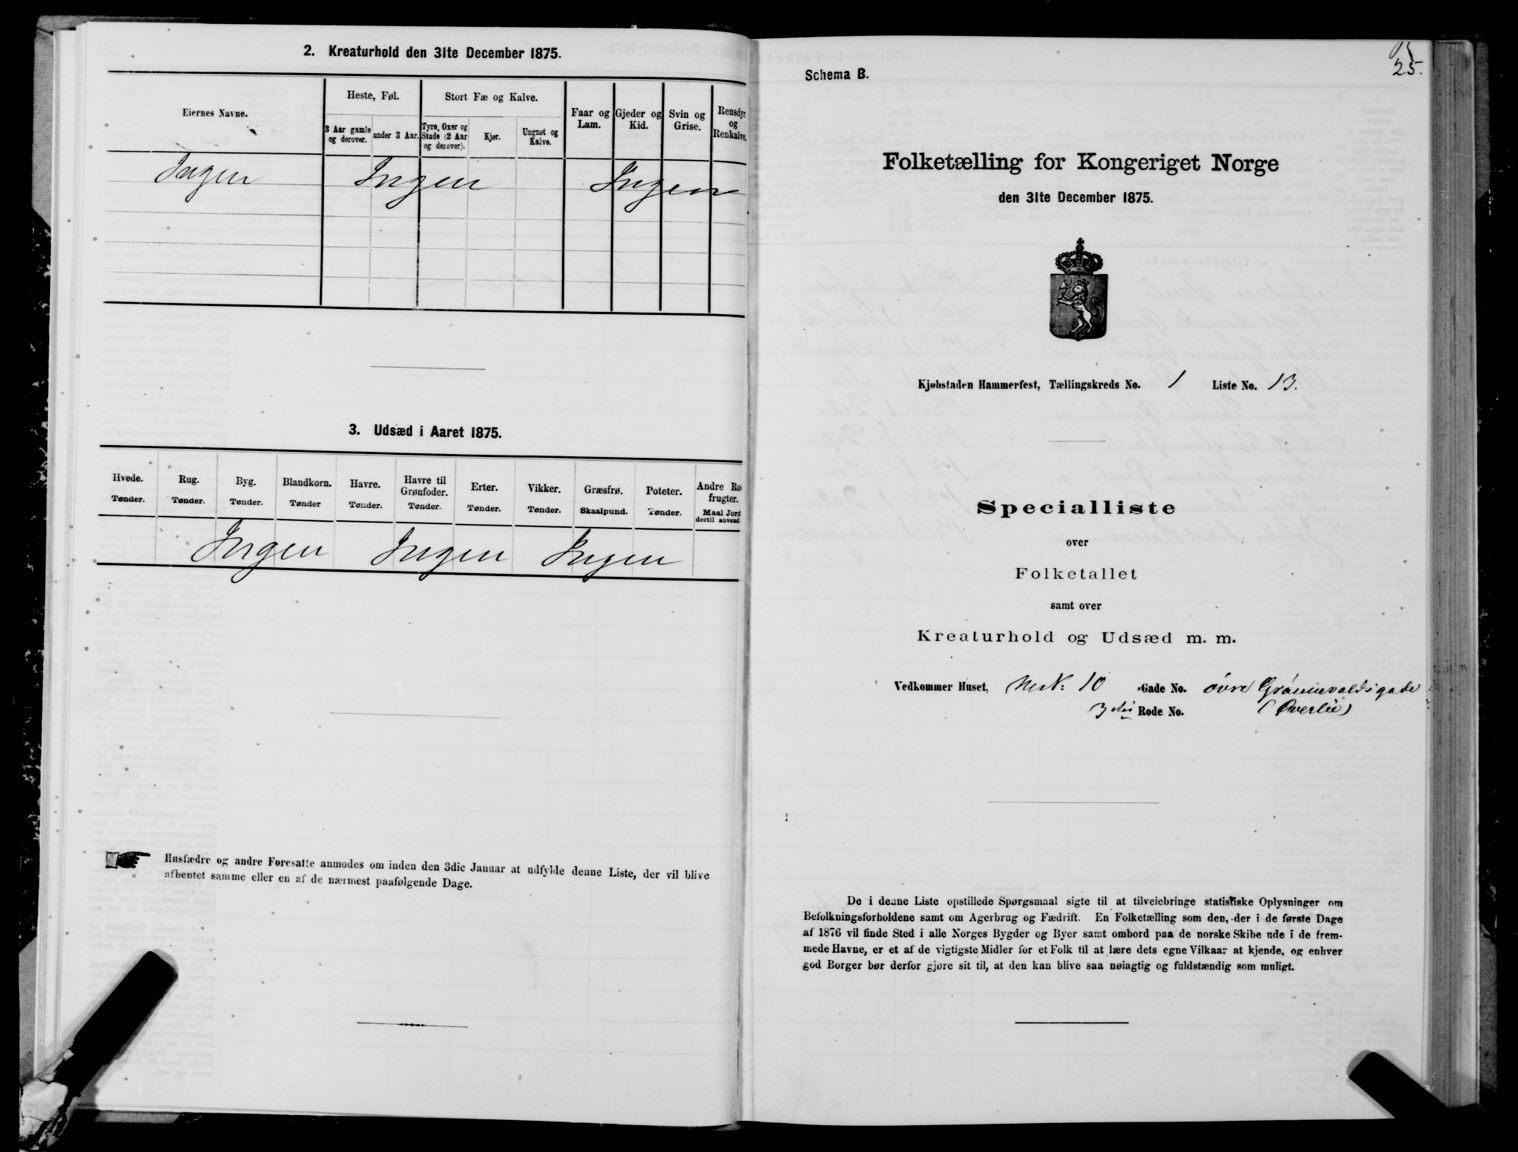 2. Kreaturhold den 31te December 1875.
Eiernes Navne.
Heste, Føl.
Stort Fæ og Kalve.
Faar og Lam.
Gjeder og Kid.
Svin og Grise.
Rensdyr og Renkalve.
3 Aar gamle og derover.
under 3 Aar.
Tyre, Oxer og Stude (2 Aar og derover).
Kjør.
Ungnøt og Kalve.
Ingen Ingen Ingen
3. Udsæd i Aaret 1875.
Hvede. Rug. Byg. Blandkorn. Havre. Havre til Grønfoder. Erter. Vikker. Græsfrø. Poteter. Andre Ro frugter.
Tønder. Tønder. Tønder. Tønder Tønder. Tønder. Tønder. Tønder. Skaalpund. Tønder. Maal Jord dertil anvend
Ingen Ingen Ingen
Husfædre og andre Foresatte anmodes om inden den 3die Januar at udfylde denne Liste, der vil blive
afhentet samme eller en af de nærmest paafølgende Dage.
25.
Schema B.
Folketælling for Kongeriget Norge
den 31te December 1875.
Kjøbstaden Hammerfest, Tællingskreds No. 1 Liste No. 13.
Specialliste
over
Folketallet
samt over
Kreaturhold og Udsæd m. m.
Vedkommer Huset, 10 Gade No. øvre Grønnevoldsgade
3die Rode No. (Øverlie)
De i denne Liste opstillede Spørgsmaal sigte til at tilveiebringe statistiske Oplysninger om
Befolkningsforholdene samt om Agerbrug og Fædrift. En Folketælling som den, der i de første Dage
af 1876 vil finde Sted i alle Norges Bygder og Byer samt ombord paa de norske Skibe ude i de frem-
mede Havne, er et af de vigtigste Midler for et Folk til at lære dets egne Vilkaar at kjende, og enhver
god Borger bør derfor gjøre sit til, at den kan blive saa nøiagtig og fuldstændig som muligt.